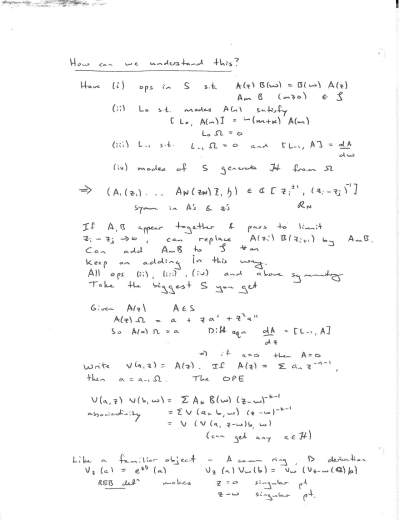 How can we understand this?
Have (i) ops in S s.t. A(z) B(w) = B(w) A(z)
Am B (m≥0) ∈ S
(ii) L₀ s.t. modes A(n) satisfy
[L₀, A(n)] = -(m+n) A(n)
L₀ Ω = 0
(iii) L₋₁ s.t. L₋₁ Ω = 0 and [L₋₁, A] = dA/dw
(iv) modes of S generate H from Ω
⇒ (A₁(z₁) ... A_N(z_N) ξ, η) ∈ C[zᵢ^±1, (zᵢ - zⱼ)^-1]
symm in A's & z's R_N
If A, B appear together & pass to limit
zᵢ - zⱼ → 0, can replace A(zᵢ) B(zᵢ₊₁) by AmB.
Can add AmB to S
Keep on adding in this way.
All ops (ii), (iii), (iv) and above symmetry
Take the biggest S you get
Given A(z) A ∈ S
A(z) Ω = a + z a' + z² a''
So A(n) Ω = a Diff eqn dA/dz = [L₋₁, A]
⇒ if a=0 then A=0
Write V(a, z) = A(z). If A(z) = Σ aₙ z^-n-1,
then a = a₋₁ Ω. The OPE
V(a, z) V(b, w) = Σ Aₙ B(w) (z-w)^-n-1
associativity = Σ V(aₙ b, w) (z-w)^-n-1
= V(V(a, z-w)b, w)
(can get any c ∈ H)
Like a familiar object - A comm ring, D derivation
V_z(a) = e^zD (a) V_z(a) V_w(b) = V_w(V_z-w(a)b)
REB defⁿ makes z=0 singular pt
z=w singular pt.